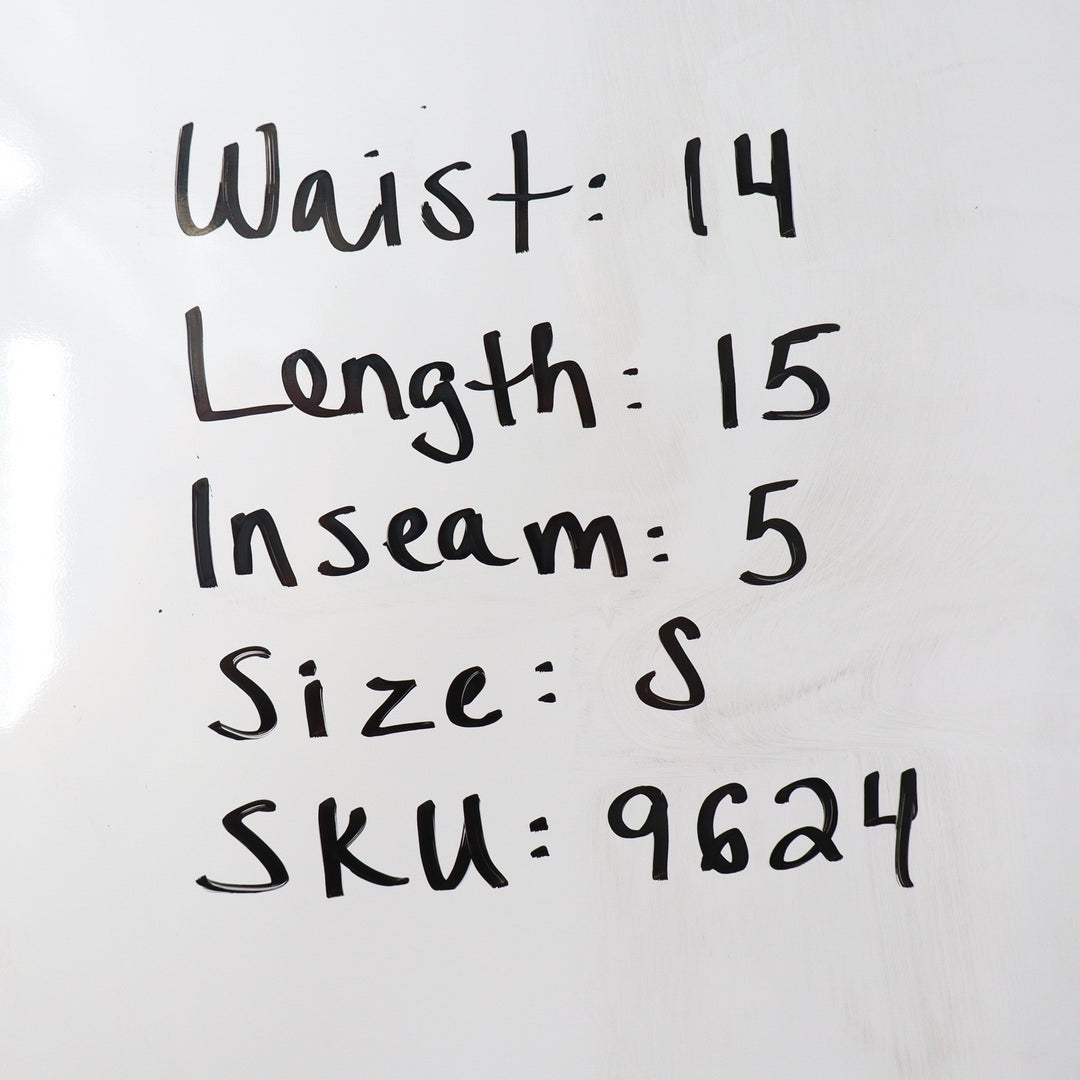 Waist: 14
Length: 15
Inseam: 5
Size: S
SKU: 9624